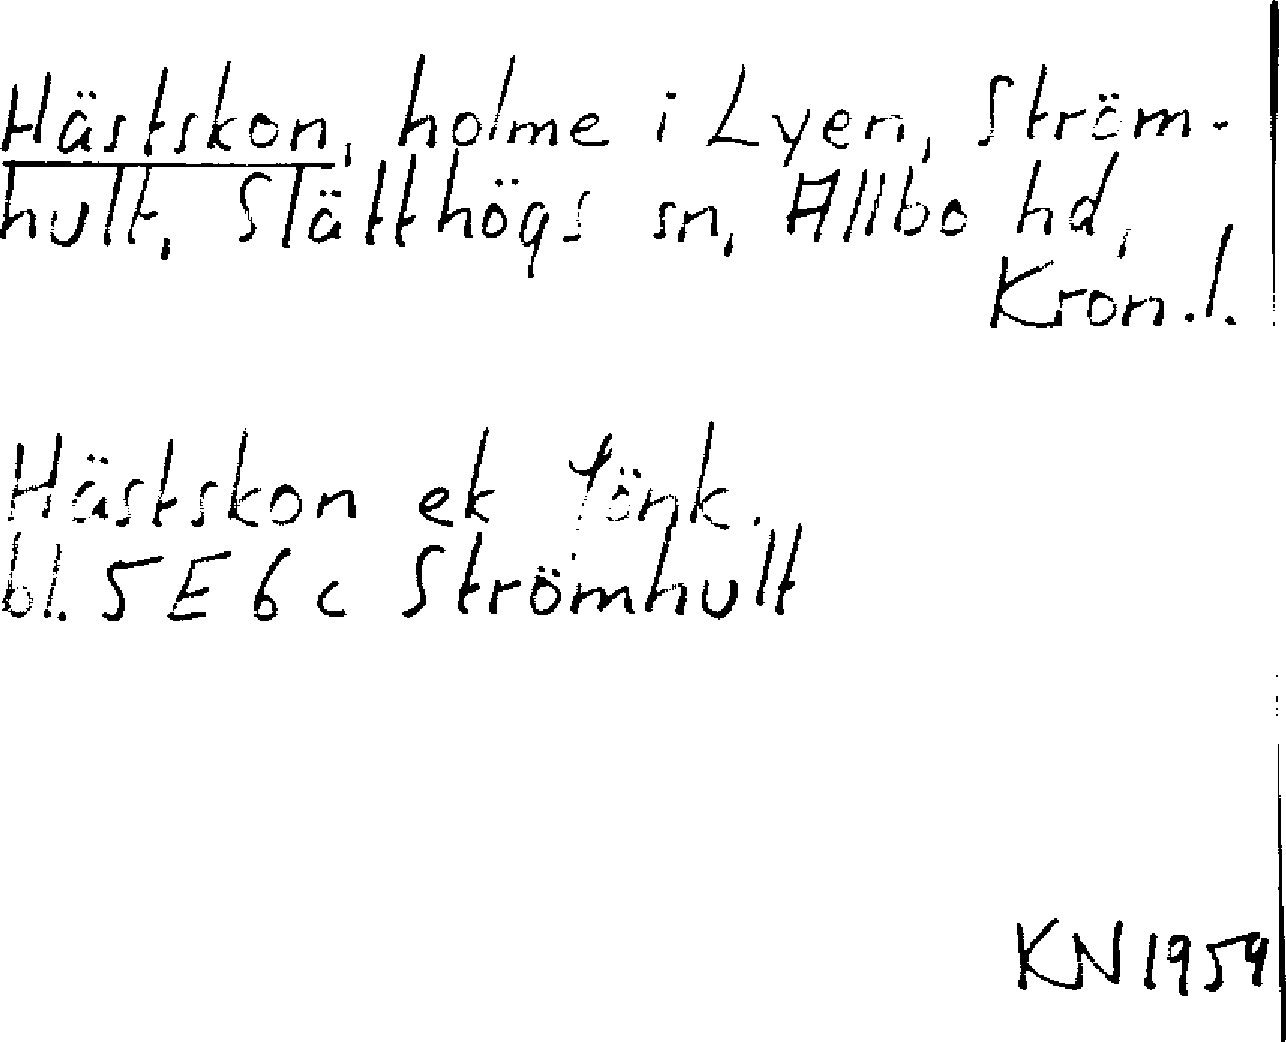 Hästskon, holme i Lyen, Ström-
hult, Slätthögs sn, Allbo hd,
Kron.l.
Hästskon ek Jönk.
bl. 5E6c Strömhult
KN 1959